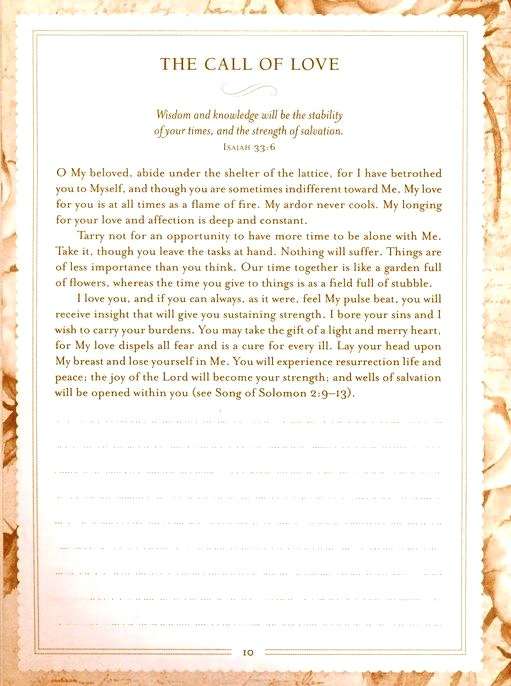 THE CALL OF LOVE
Wisdom and knowledge will be the stability
of your times, and the strength of salvation.
Isaiah 33:6
O My beloved, abide under the shelter of the lattice, for I have betrothed
you to Myself, and though you are sometimes indifferent toward Me, My love
for you is at all times as a flame of fire. My ardor never cools. My longing
for your love and affection is deep and constant.
Tarry not for an opportunity to have more time to be alone with Me.
Take it, though you leave the tasks at hand. Nothing will suffer. Things are
of less importance than you think. Our time together is like a garden full
of flowers, whereas the time you give to things is as a field full of stubble.
I love you, and if you can always, as it were, feel My pulse beat, you will
receive insight that will give you sustaining strength. I bore your sins and I
wish to carry your burdens. You may take the gift of a light and merry heart,
for My love dispels all fear and is a cure for every ill. Lay your head upon
My breast and lose yourself in Me. You will experience resurrection life and
peace; the joy of the Lord will become your strength; and wells of salvation
will be opened within you (see Song of Solomon 2:9–13).
10